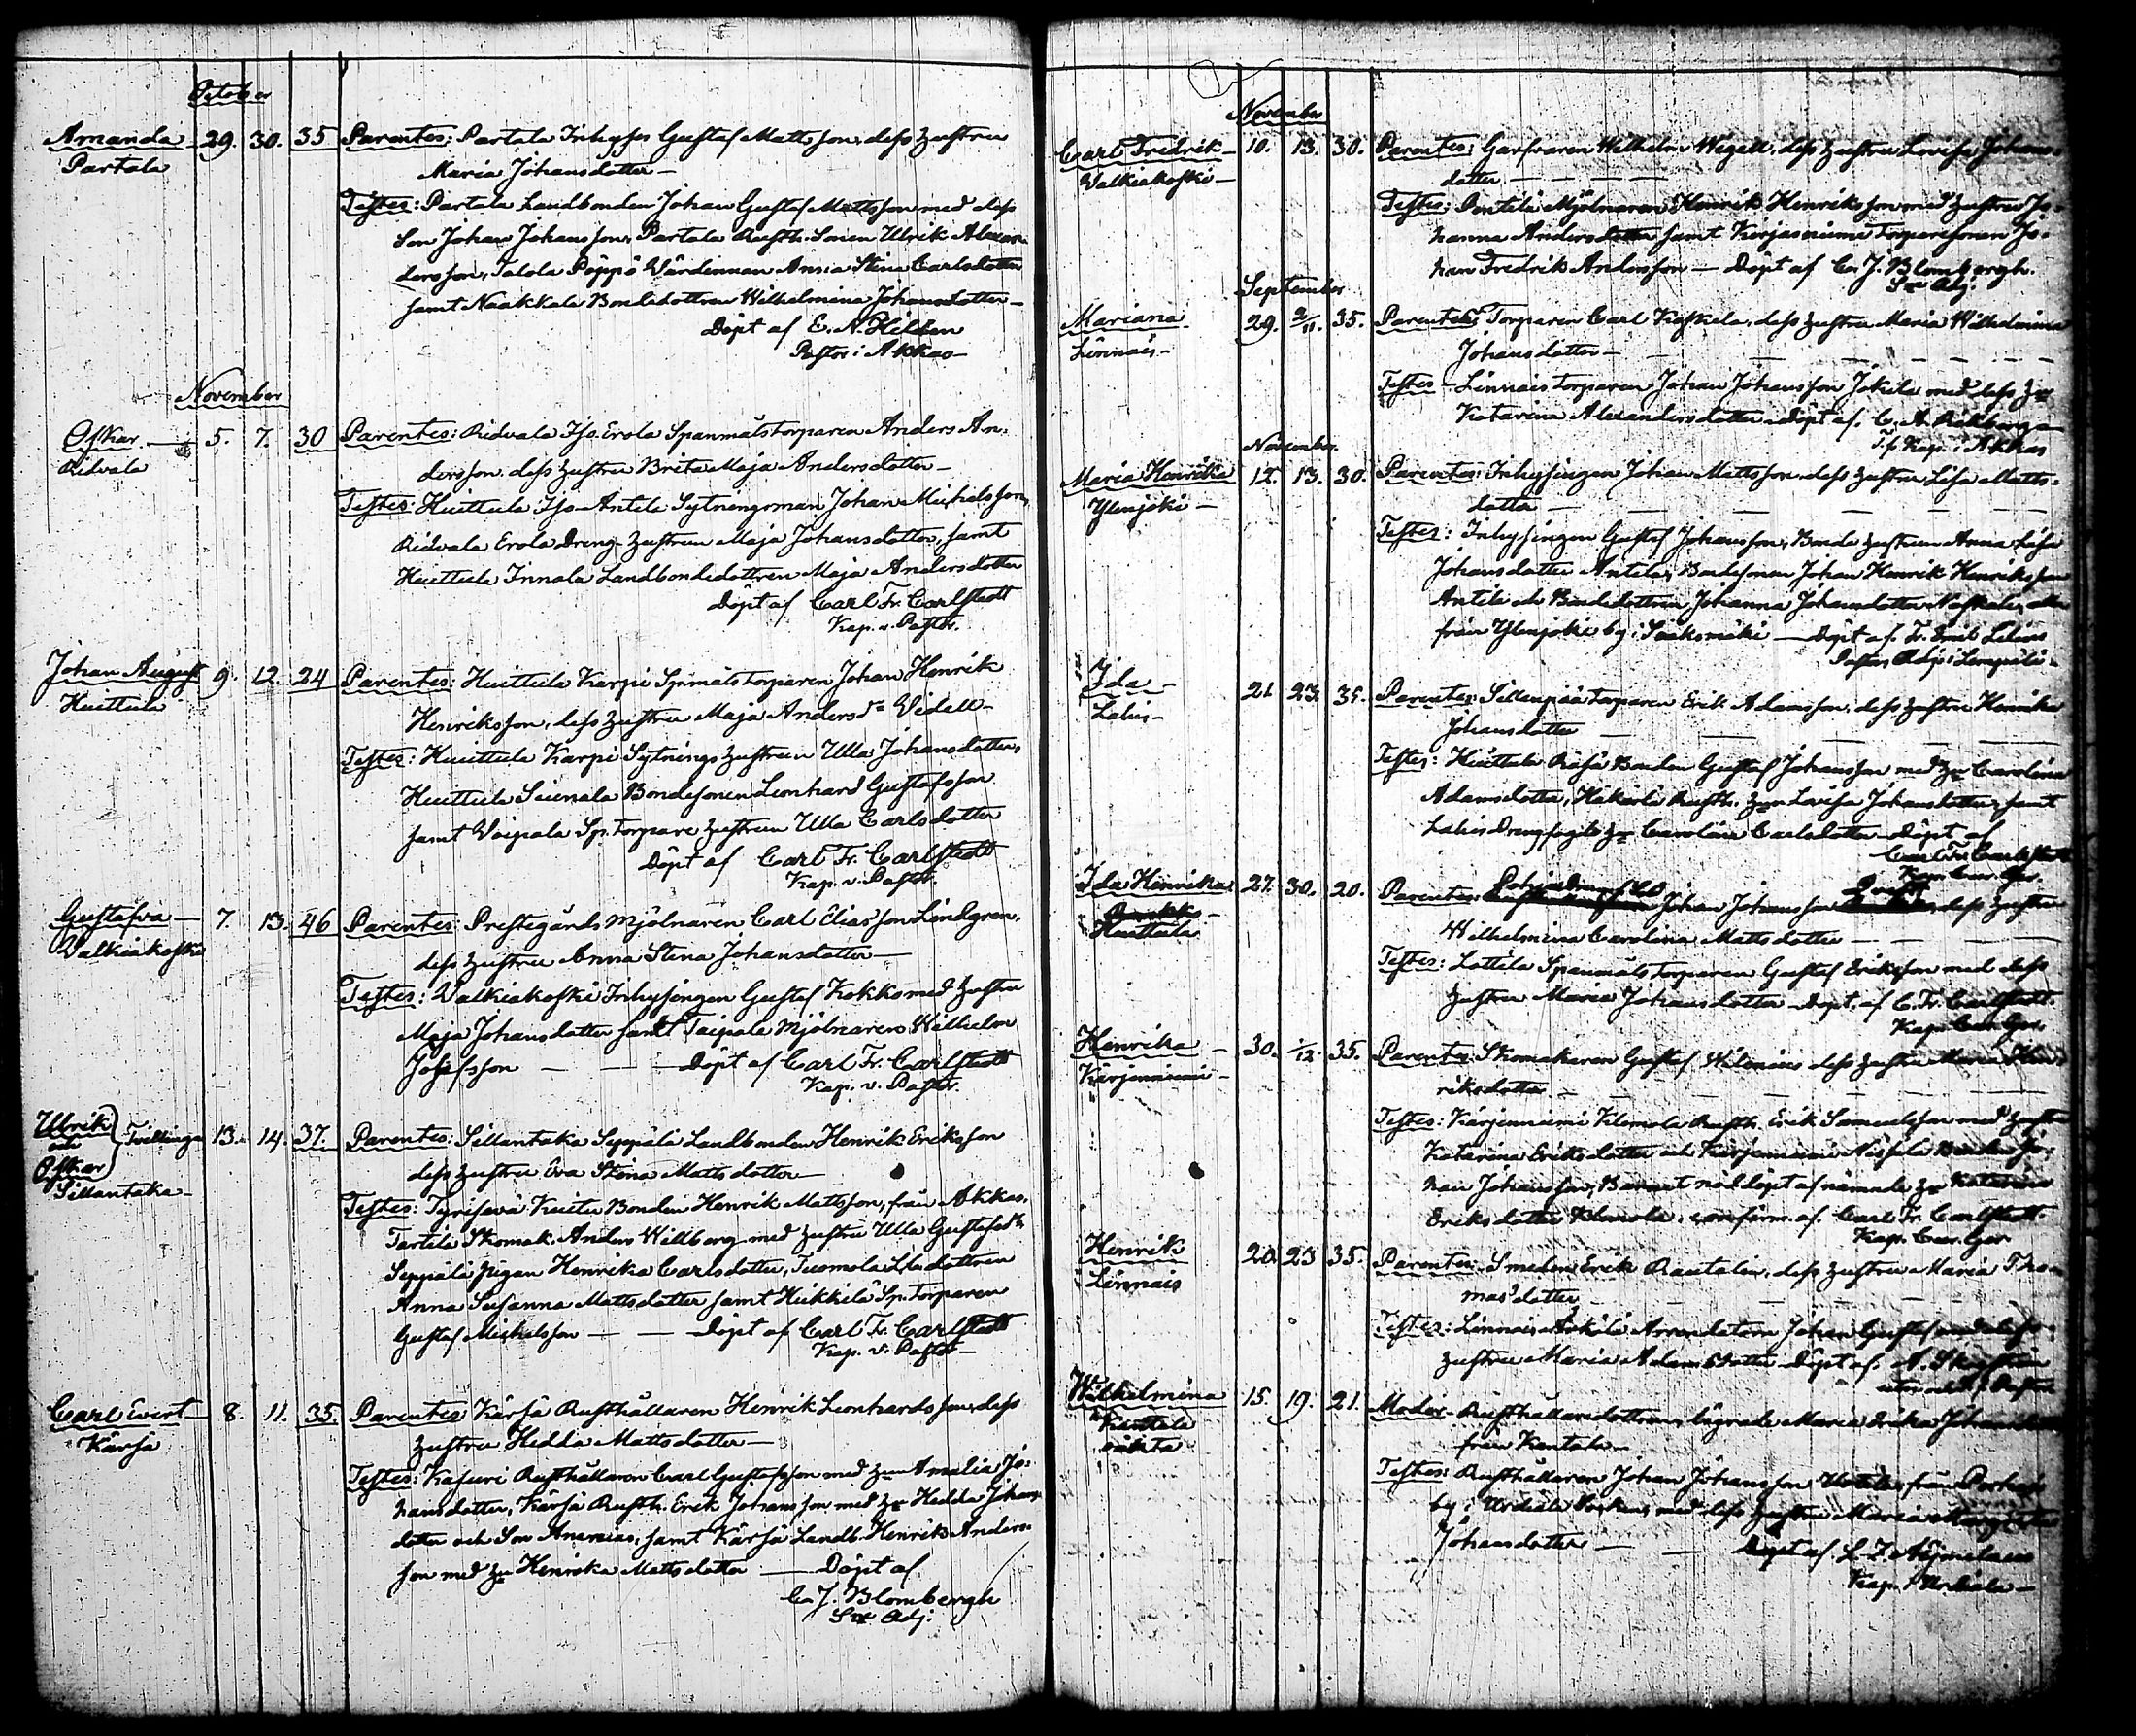 October
Amanda 29. 30. 35 Parentes: Partala Inhyses Gustaf Mattsson, dess hustru
Partala Maria Johansdotter —
Testes: Partala Landbonden Johan Gustaf Mattsson med dess
Son Johan Johansson, Partala Rusth. Sonen Ulrik Alexan-
dersson, Jalola Värdinnan Anna Stina Carlsdotter
samt Naakkala Bondedottren Wilhelmina Johansdotter —
Döpt af E. N. Hildén
Pastor i Akkas —
November
Oskar 5. 7. 30 Parentes: Ridvala Iso Erola Spanmålstorparen Anders An-
Ridvala dersson dess hustru Brita Maja Andersdotter —
Testes: Huittula Iso-Antila Sytningsman Johan Michelsson,
Ridvala Erola Dreng-hustrun Maja Johansdotter, samt
Huittula Innala Landbondedottren Maja Andersdotter
Döpt af Carl Fr. Carlstedt
Kap. v. Pastor.
Johan August 9. 12. 24 Parentes: Huittula Karpi Spmålstorparen Johan Henrik
Huittula Henriksson, dess hustru Maja Andersdr Videll —
Testes: Huittula Karpi Sytnings hustrun Ulla Johansdotter,
Huittula Bondesonen Leonhard Gustafsson
samt Voipala Sp. torpare hustrun Ulla Carlsdotter
Döpt af Carl Fr. Carlstedt
Kap. v. Pastor.
Gustafva — 7. 13. 46 Parentes: Prestegårds Mjölnaren Carl Eliasson Lindgren,
Valkiakoski dess hustru Anna Stina Johansdotter —
Testes: Valkiakoski Inhysingen Gustaf Kokko med hustru
Maja Johansdotter samt Taipale Mjölnaren Wilhelm
Josefsson — — Döpt af Carl Fr. Carlstedt
Kap. v. Pastor.
Ulrik och Oskar Tvillingar 13. 14. 37. Parentes: Sillantaka Seppälä Landbonden Henrik Eriksson
Sillantaka — dess hustru Eva Stina Mattsdotter —
Testes: Bonden Henrik Mattsson, från Akkas,
Tartila Skomak. Anders Willberg med hustru Ulla Gustafsdr
Seppälä pigan Henrika Carlsdotter, Tuomola Ldb. dottren
Anna Susanna Mattsdotter samt Heikkilä Sp. torparen
Gustaf Michelsson — — Döpt af Carl Fr. Carlstedt
Kap. v. Pastor —
Carl Evert — 8. 11. 35. Parentes: Kärsä Rusthållaren Henrik Leonhardsson, dess
Kärsä hustru Hedda Mattsdotter —
Testes: Rusthållaren Carl Gustafsson med hun Amalia Jo-
hansdotter, Kärsä Rusth. Erik Johansson med hu Hedda Johans-
dotter och Son Ananias, samt Kärsä Landb. Henrik Anders-
son med hu Henrika Mattsdotter — Döpt af
C. J. Blombergh
Sv Adj:
November
Carl Fredrik — 10. 13. 30. Parentes: Garfvaren Wilhelm Wigell, dess hustru Lovisa Johans-
Walkiakoski — dotter — — — —
Testes: Pentilä Mjölnaren Henrik Henriksson med hustru Jo-
hanna Andersdotter samt Kärjesniemi Torparesonen Jo-
han Fredrik Andersson — Döpt af C. J. Blombergh.
Sv Adj:
September
Mariana 29. 2/11. 35. Parentes: Torparen Carl Koskela, dess hustru Maria Wilhelmina
Linnais — Johansdotter — — — — — —
Testes — Linnais torparen Johan Johansson Jokila med dess hu
Katarina Alexandersdotter. Döpt af C. A.
T.f. Kap. i Akkas
November.
Maria Henrika 12. 13. 30. Parentes: Inhysingen Johan Mattsson, dess hustru Lisa Matts-
Ylenjoki — dotter — — — — —
Testes: Inhysingen Gustaf Johansson, Bonde hustrun Anna Lisa
Johansdotter Antila, Bondesonen Johan Henrik Henriksson
Antila och Bondedottren Johanna Johansdotter alla
från Ylenjoki by i Sääksmäki — Döpt af Fr. Emil
Pastors Adj: i Lempälä —
Ida — 21. 23. 35. Parentes: Sillanpää torparen Erik Adamsson, dess hustru Henrika
Lahis — Johansdotter — — — —
Testes: Huittula Bonden Gustaf Johansson med hu Carolina
Adamsdotter, Rusth. hun Lovisa Johansdotter, samt
Lahis Drengfogde hu Carolina Carlsdotter — Döpt af
Carl Fr. Carlstedt
Kap. Cur. Ger.
Ida Henrika 27. 30. 20. Parentes: Johan Johansson dess hustru
Huittula Wilhelmina Carolina Mattsdotter — — — —
Testes: Lottila Spanmåls torparen Gustaf Eriksson med dess
hustru Maria Johansdotter — Döpt af C. Fr. Carlstedt.
Kap. Cur. Ger.
Henrika — 30. 1/12. 35. Parentes: Skomakaren Gustaf dess hustru Maria Hen-
Kärjenniemi — riksdotter — — — —
Testes: Kärjenniemi Klemola Rusth. Erik Samuelsson med hustru
Katarina Eriksdotter och Kärjenniemi Bonden Jo-
han Johansson, Barnet nöddöpt af nämnde hu Katarina
Eriksdotter Klemola, confirm. af Carl Fr. Carlstedt.
Kap. Cur. Ger
Henrik 20. 23 35. Parentes: Smeden Erik Rautalin, dess hustru Maria Tho-
Linnais masdotter — — — —
Testes: Linnais Arrendatorn Johan Gustaf
hustru Maria Adamsdotter — Döpt af A.
Wilhelmina 15. 19. 21. Moder — Rusthållaredottren, lägrade Maria Erika Johansdotter
Kantala från Kantala —
oäkta
Testes: Rusthållaren Johan Johansson från
by i Urdiala Socken, med dess hustru Maria
Johansdotter — — Döpt af L. F.
Kap. i Urdiala —